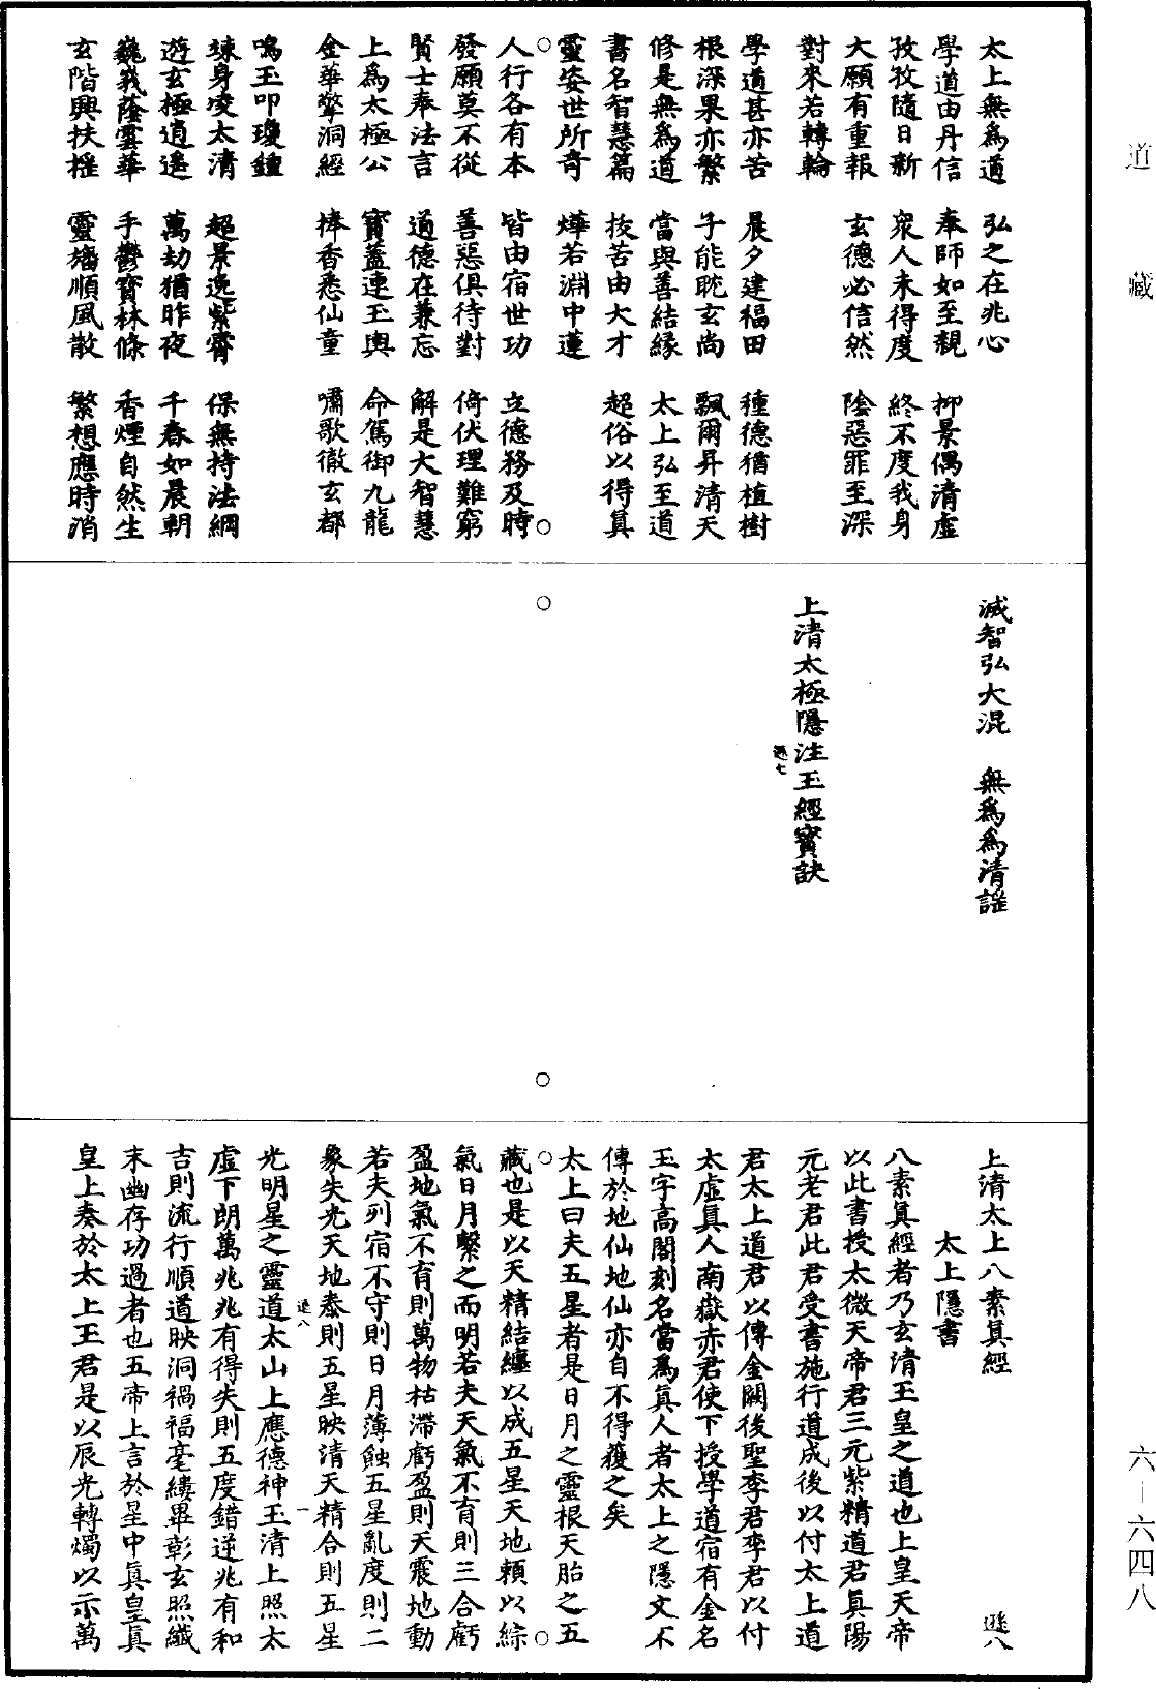 道藏
六－六四八
太上無爲道　弘之在兆心
學道由丹信　奉師如至親　抑景偶清虛
孜孜隨日新　衆人未得度　終不度我身
大願有重報　玄德必信然　陰惡罪至深
對來若轉輪
學道甚亦苦　晨夕建福田　種德猶植樹
根深果亦繁　子能耽玄尚　飄爾昇清天
修是無爲道　當與善結緣　太上弘至道
書名智慧篇　拔苦由大才　超俗以得眞
靈姿世所奇　燁若淵中蓮
人行各有本　皆由宿世功　立德務及時
發願莫不從　善惡俱待對　倚伏理難窮
賢士奉法言　道德在兼忘　解是大智慧
上爲太極公　寶蓋連玉輿　命駕御九龍
金華擎洞經　捧香悉仙童　嘯歌徹玄都
鳴玉叩瓊鐘
竦身凌太清　超景逸紫霄　保無持法綱
遊玄極逍遙　萬劫猶昨夜　千春如晨朝
巍峩蔭雲華　手鬱寶林條　香煙自然生
玄階興扶搖　靈旛順風散　繁想應時消
滅智弘大混　無爲爲清謠
上清太極隱注玉經寶訣
遜七
上清太上八素眞經　遜八
太上隱書
八素眞經者乃玄清玉皇之道也上皇天帝
以此書授太微天帝君三元紫精道君眞陽
元老君此君受書施行道成後以付太上道
君太上道君以傳金闕後聖李君李君以付
太虛眞人南嶽赤君使下授學道宿有金名
玉字高閣刻名當爲眞人者太上之隱文不
傳於地仙地仙亦自不得獲之矣
太上曰夫五星者是日月之靈根天胎之五
藏也是以天精結纏以成五星天地賴以綜
氣日月繫之而明若夫天氣不育則三合虧
盈地氣不育則萬物枯滯虧盈則天震地動
若夫列宿不守則日月薄蝕五星亂度則二
象失光天地泰則五星映清天精合則五星
遜八　一
光明星之靈道太山上應德神玉清上照太
虛下朗萬兆兆有得失則五度錯逆兆有和
吉則流行順道映洞禍福毫縷畢彰玄照纖
末幽存功過者也五帝上言於星中眞皇眞
皇上奏於太上玉君是以辰光轉燭以示萬